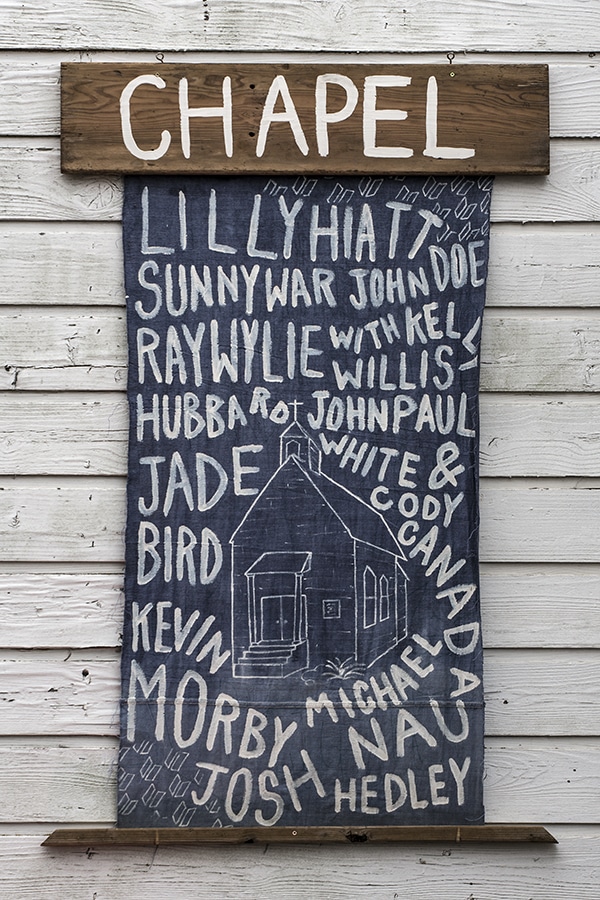 CHAPEL
LILLY HIATT
SUNNY WAR JOHN DOE
RAY WYLIE WITH KELLY
WILLIS
HUBBARD JOHN PAUL
JADE WHITE &
CODY
BIRD CANADA
KEVIN
MORBY MICHAEL
NAU
JOSH HEDLEY